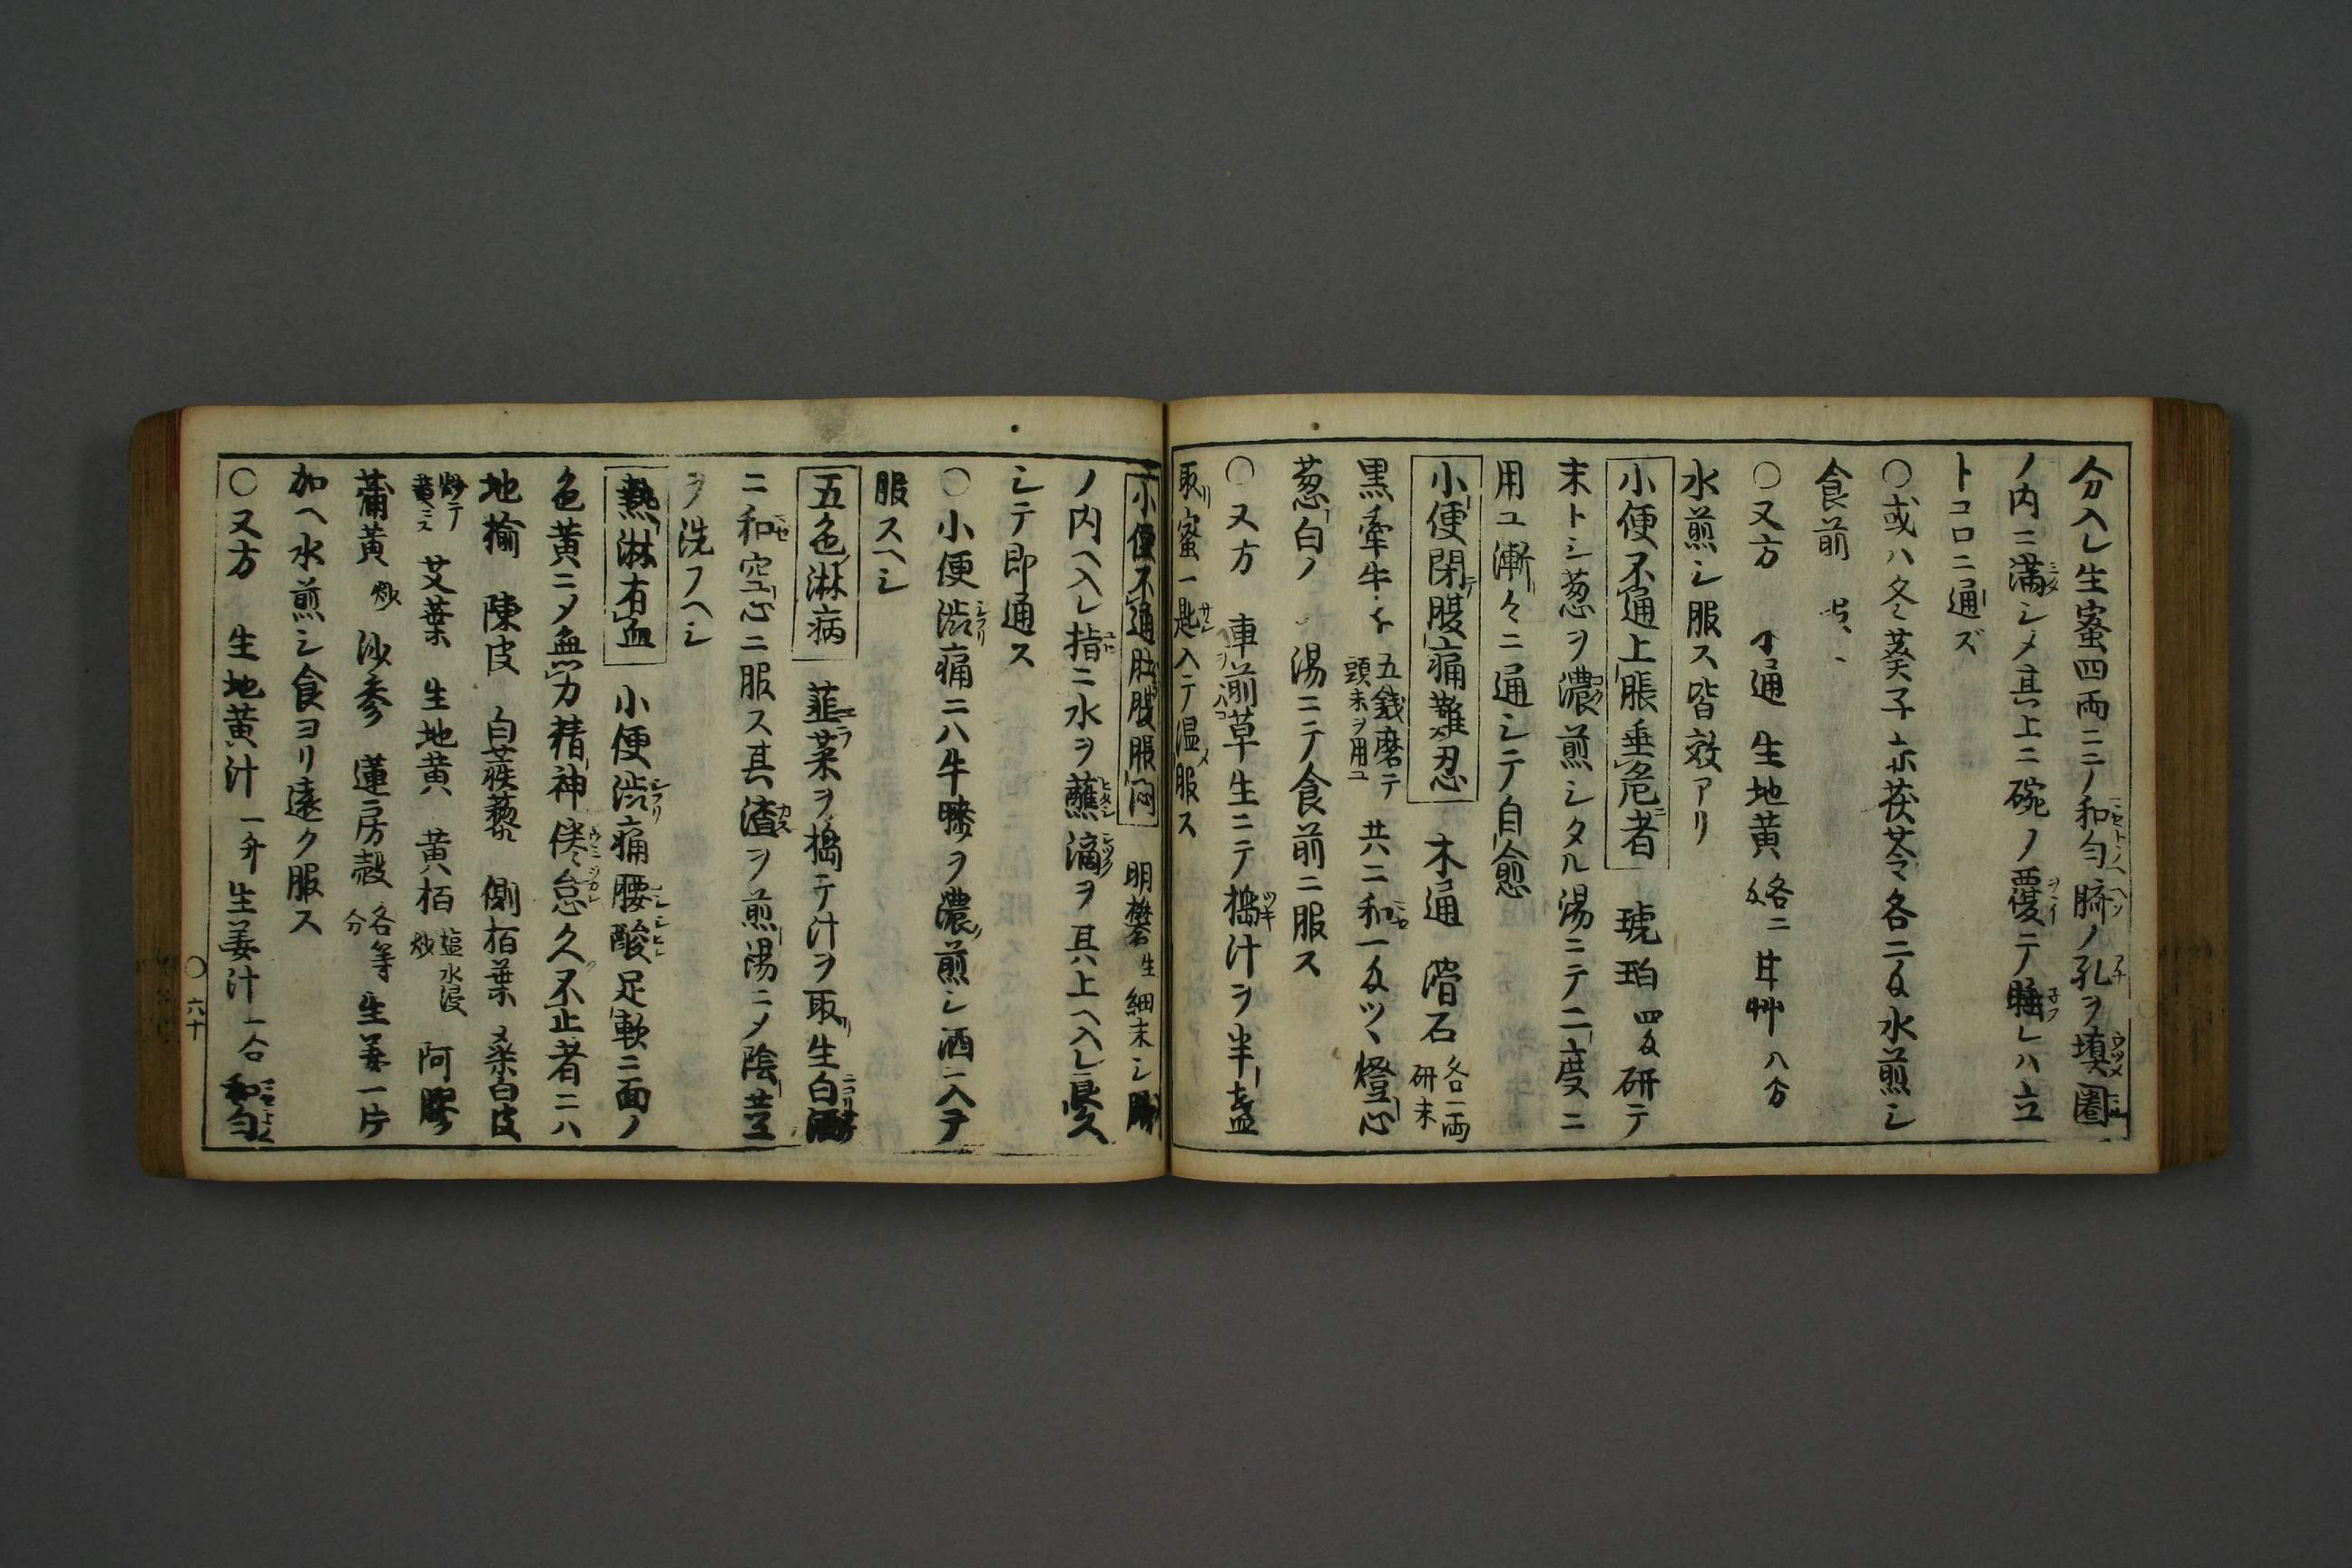 分入レ生蜜四両ニノ和匀臍ノ孔ヲ填圏
ノ内ニ満シメ其上ニ碗ノ覆テ睡レハ立
トコロニ通ズ
〇或ハ冬葵子赤茯苓各二匁水煎シ
食前
〇又方 通 生地黄 各二匁 甘艸 八分
水煎シ服ス皆效アリ
小便不通上脹垂危者 琥珀 四匁 研テ
末トシ葱ヲ濃煎シタル湯ニテ二度ニ
用ユ漸々ニ通シテ自愈
小便閉腹痛難忍 木通 滑石 各一両研末
黒牽牛 五銭磨テ頭末ヲ用ユ 共ニ和一匁ツヽ燈心
葱白ノ 湯ニテ食前ニ服ス
〇又方 車前草生ニテ搗汁ヲ半盞
取蜜一匙入テ温服ス
小便不通肚腹脹悶 明礬 生 細末シ臍
ノ内ヘ入レ指ニ水ヲ蘸滴ヲ其上ヘ入レ良久
シテ即通ス
〇小便渋痛ニハ牛膝ヲ濃煎シ酒ニ入テ
服スヘシ
五色淋病 韮菜ヲ搗テ汁ヲ取生白酒
ニ和空心ニ服ス其渣ヲ煎湯ニメ陰茎
ヲ洗フヘシ
熱淋有血 小便渋痛腰酸足軟ニ面ノ
色黄ニメ血少力精神倦怠久不止者ニハ
地榆 陳皮 白蒺藜 側栢葉 桑白皮
炒テ 艾葉 生地黄 黄栢 塩水浸炒 阿膠
蒲黄 炒 沙参 蓮房殻 各等分 生姜一片
加ヘ水煎シ食ヨリ遠ク服ス
〇又方 生地黄汁 一升 生姜汁 一合 和匀
〇六十